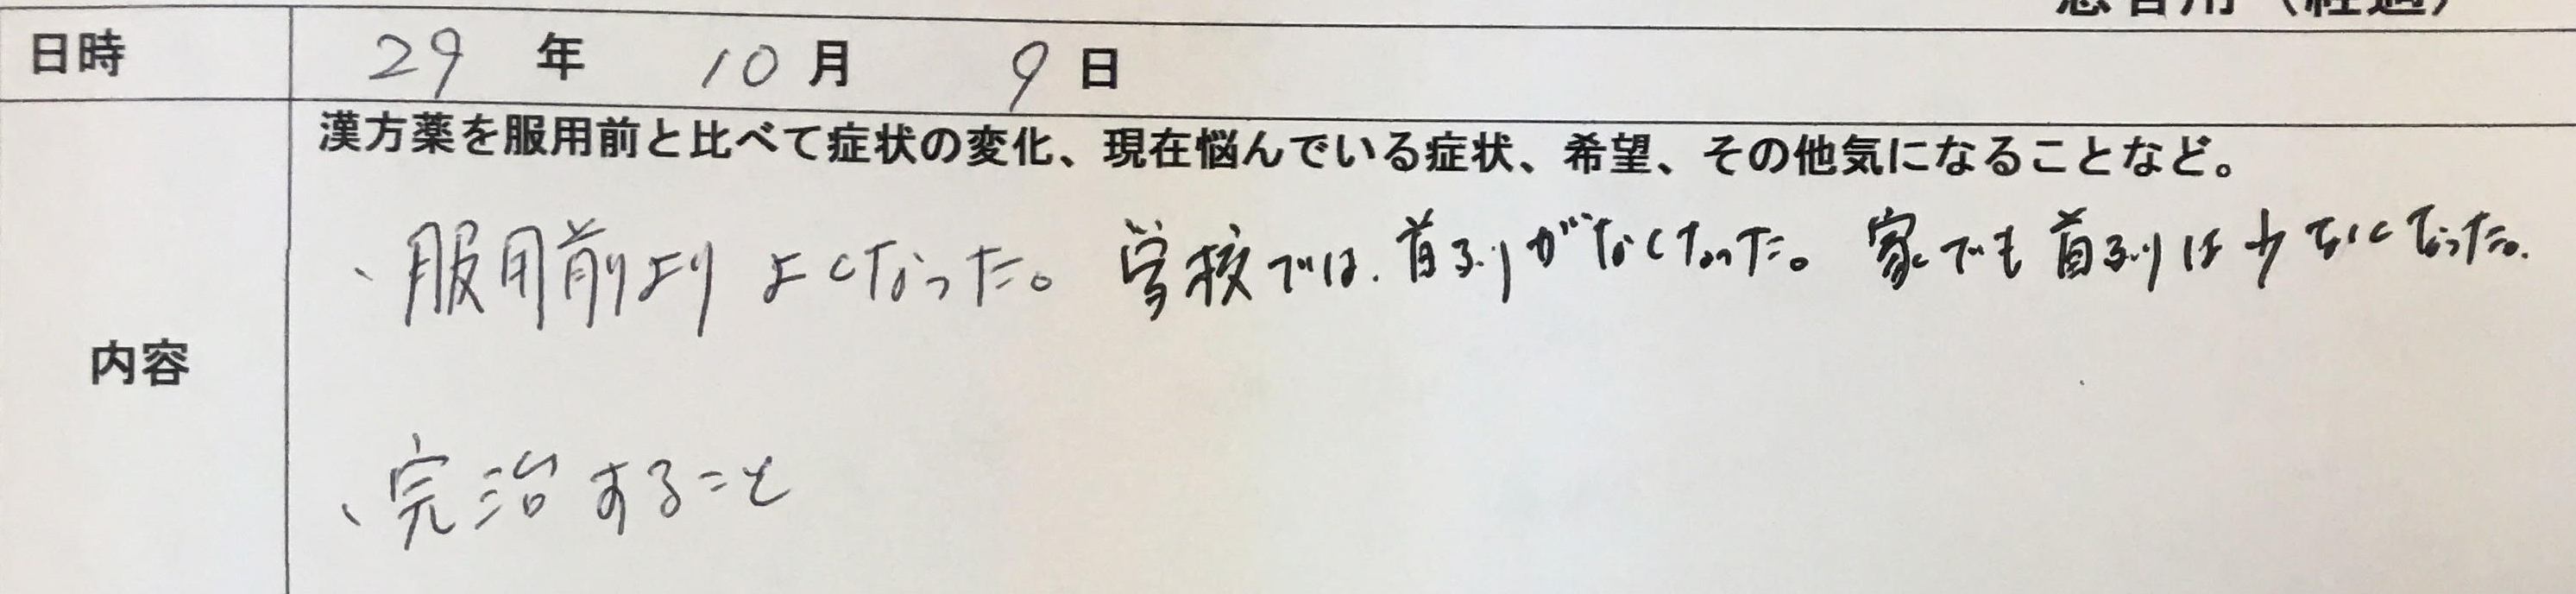 患者用（経過）
日時 29 年 10 月 9 日
漢方薬を服用前と比べて症状の変化、現在悩んでいる症状、希望、その他気になることなど。
、服用前より よくなった。学校では、首ふりがなくなった。家でも首ふりは少なくなった。
内容
、完治すること